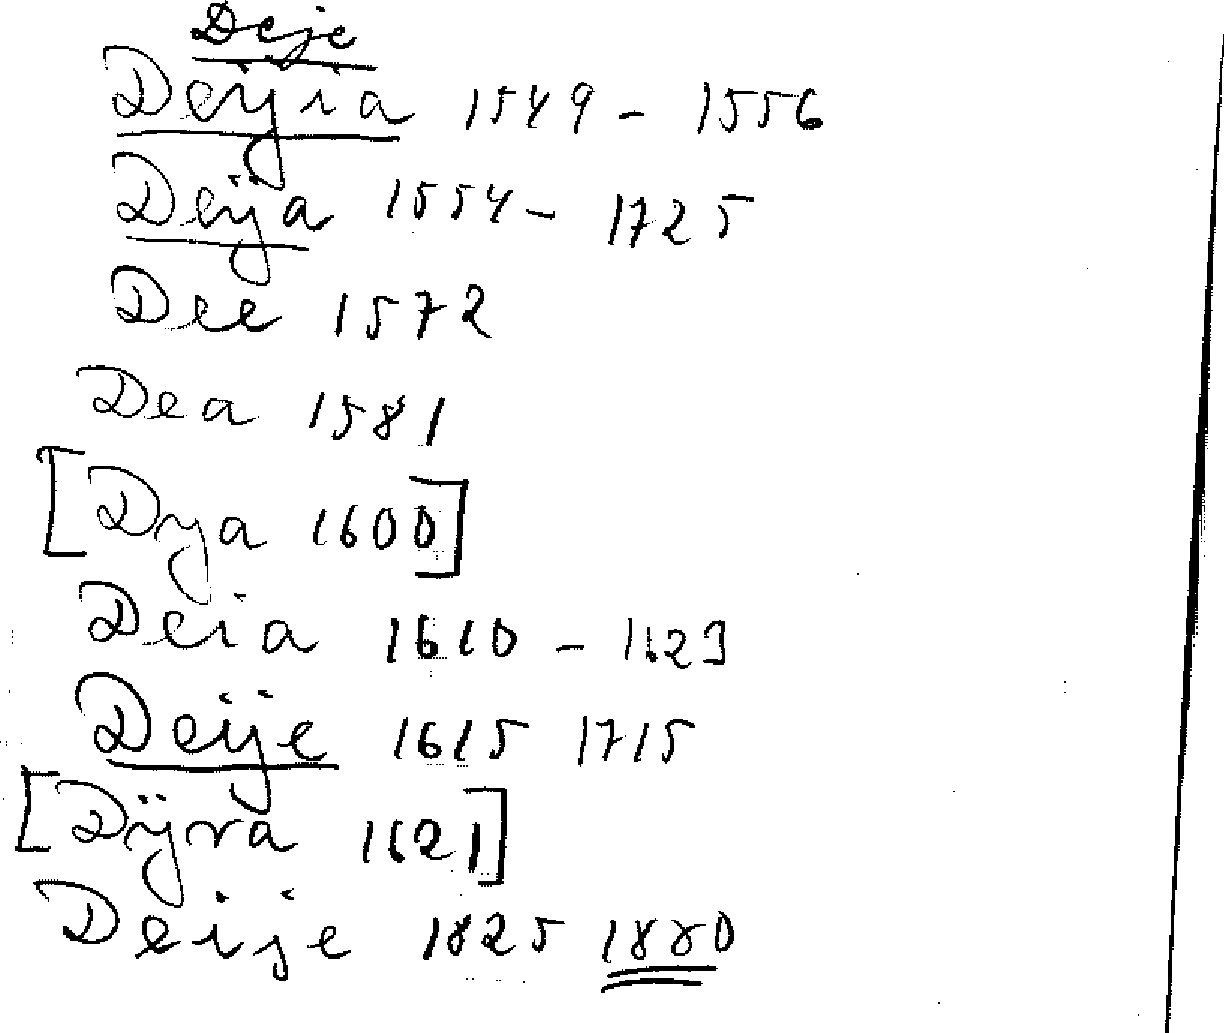 Deje
Deijia 1549 - 1556
Deija 1554 - 1725
Dee 1572
Dea 1581
[Dya 1600]
Deia 1610 - 1623
Deije 1615 1715
[Dÿra 1621]
Deije 1825 1880